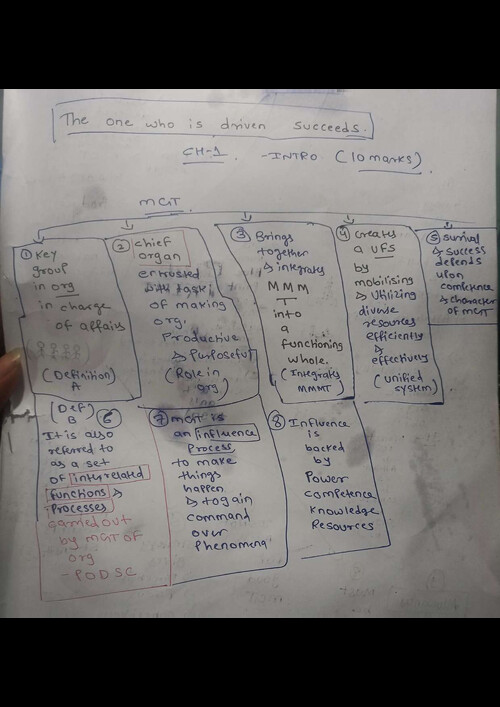 The one who is driven succeeds.
CH-1 - INTRO (10 marks)
MGT
① Key
group
in org
in charge
of affairs
(Definition)
A
② chief
organ
entrusted
with task
of making
org.
Productive
& Purposeful
(Role in
org)
③ Brings
together
& integrates
MMM
T
into
a
functioning
whole.
(Integrates
MMMT)
④ Creates
a UFS
by
mobilising
& Utilizing
diverse
resources
efficiently
&
effectively
(unified
system)
⑤ survival
& success
depends
upon
competence
& character
of MGT
(Def)
B
⑥
It is also
referred to
as a set
of interrelated
functions &
Processes
carried out
by MGT OF
org
- PODSC
⑦ MGT is
an influence
Process
to make
things
happen
& to gain
command
over
Phenomena
⑧ Influence
is
backed
by
Power
competence
Knowledge
Resources